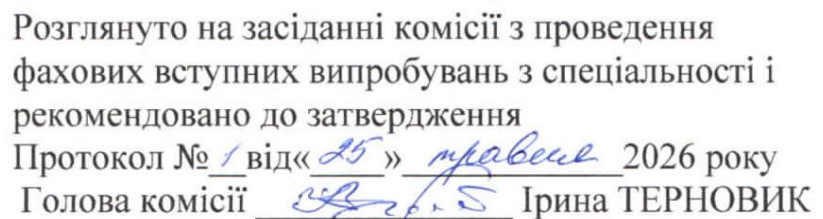 Розглянуто на засіданні комісії з проведення
фахових вступних випробувань з спеціальності і
рекомендовано до затвердження
Протокол № 1 від« 25 » травня 2026 року
Голова комісії Ірина ТЕРНОВИК